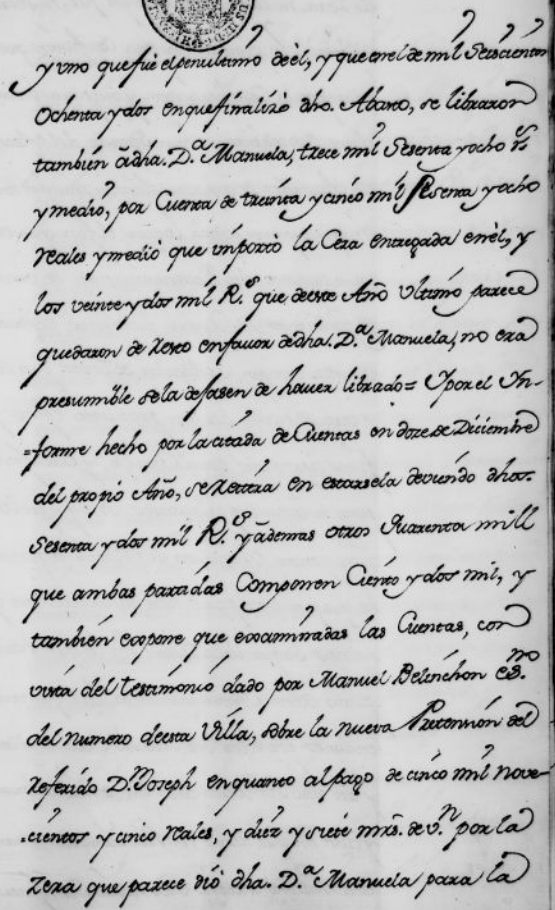 y vno que fuè el penultimo de èl, y que en el de mil Seiscientos
Ochenta y dos en que finalizò dho. Abasto, se libraron
tambien â dha. D.ª Manuela, trece mil Sesenta y ocho r.s
y medio, por Cuenta de treinta y cinco mil Sesenta y ocho
reales y medio que importò la Cera entregada en èl, y
los veinte y dos mil R.s que de este Año vltimo parece
quedaron de resto en favor de dha. D.ª Manuela, no era
presumible se la dejasen de haver librado= Y por el In-
=forme hecho por la citada de Cuentas en doze de Diciembre
del propio Año, se reitera en estarsela deviendo dhos.
Sesenta y dos mil R.s y âdemas otros Quarenta mill
que ambas partidas Componen Ciento y dos mil, y
tambien expone que examinadas las Cuentas, con
vista del testimonio dado por Manuel Belinchon es.no
del numero de esta Villa, sobre la nueva Pretension del
referido D.n Joseph en quanto al pago de cinco mil nove-
=cientos y cinco reales, y diez y siete mrs. de v.n por la
Zera que parece diò dha. D.ª Manuela para la